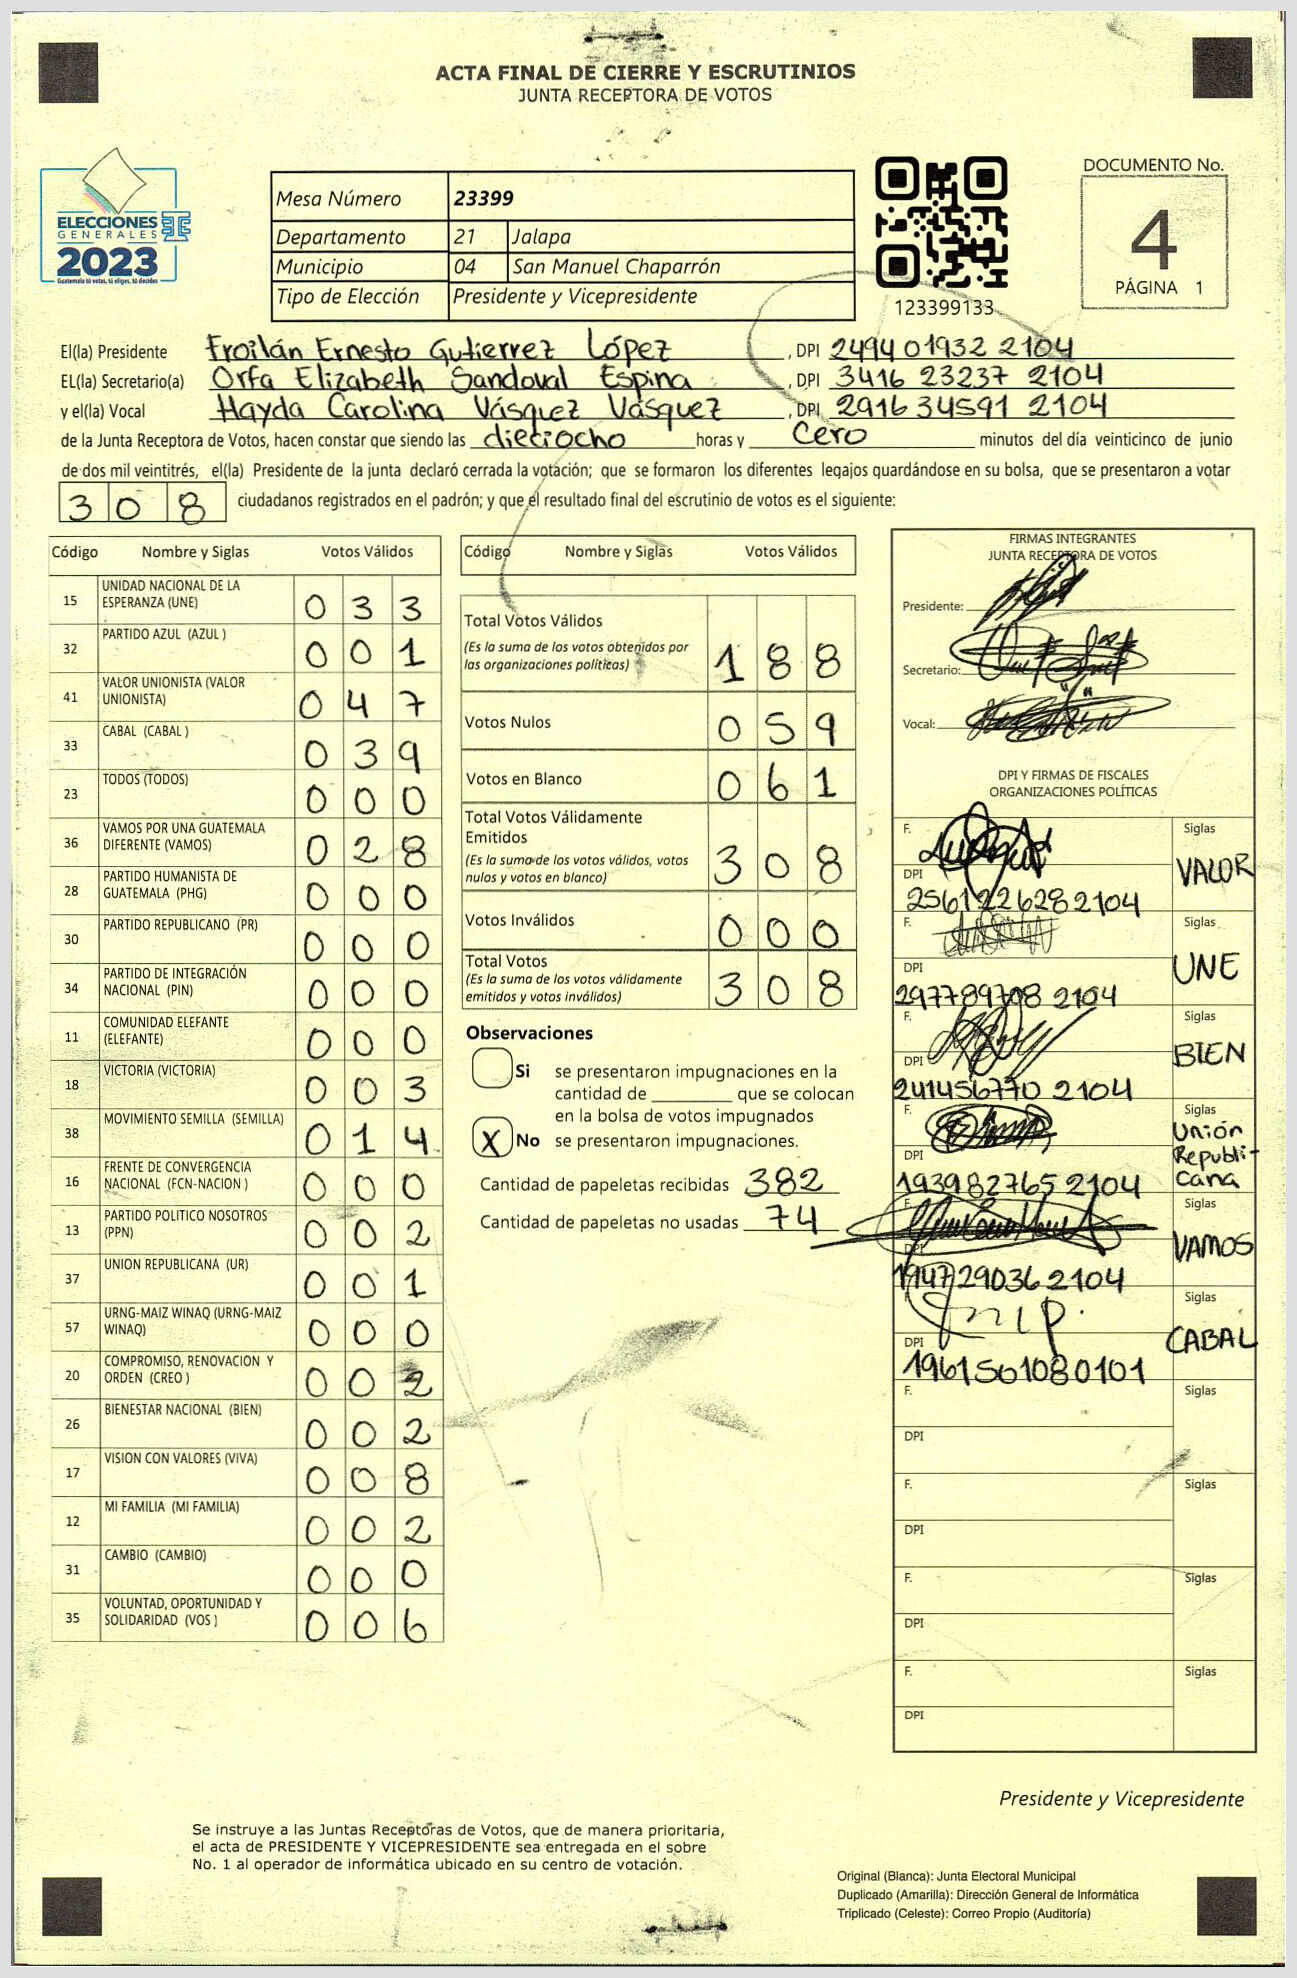 ACTA FINAL DE CIERRE Y ESCRUTINIOS
JUNTA RECEPTORA DE VOTOS
ELECCIONES
GENERALES
2023
Guatemala tú votas, tú eliges, tú decides
Mesa Número 23399
Departamento 21 Jalapa
Municipio 04 San Manuel Chaparrón
Tipo de Elección Presidente y Vicepresidente
123399133
DOCUMENTO No.
4
PÁGINA 1
El(la) Presidente Froilán Ernesto Gutierrez López , DPI 2494 01932 2104
EL(la) Secretario(a) Orfa Elizabeth Sandoval Espina , DPI 3416 23237 2104
y el(la) Vocal Hayda Carolina Vásquez Vásquez , DPI 2916 34591 2104
de la Junta Receptora de Votos, hacen constar que siendo las dieciocho horas y cero minutos del día veinticinco de junio
de dos mil veintitrés, el(la) Presidente de la junta declaró cerrada la votación; que se formaron los diferentes legajos quardándose en su bolsa, que se presentaron a votar
308 ciudadanos registrados en el padrón; y que el resultado final del escrutinio de votos es el siguiente:
Código Nombre y Siglas Votos Válidos
15 UNIDAD NACIONAL DE LA ESPERANZA (UNE) 033
32 PARTIDO AZUL (AZUL ) 001
41 VALOR UNIONISTA (VALOR UNIONISTA) 047
33 CABAL (CABAL ) 039
23 TODOS (TODOS) 000
36 VAMOS POR UNA GUATEMALA DIFERENTE (VAMOS) 028
28 PARTIDO HUMANISTA DE GUATEMALA (PHG) 000
30 PARTIDO REPUBLICANO (PR) 000
34 PARTIDO DE INTEGRACIÓN NACIONAL (PIN) 000
11 COMUNIDAD ELEFANTE (ELEFANTE) 000
18 VICTORIA (VICTORIA) 003
38 MOVIMIENTO SEMILLA (SEMILLA) 014
16 FRENTE DE CONVERGENCIA NACIONAL (FCN-NACION ) 000
13 PARTIDO POLITICO NOSOTROS (PPN) 002
37 UNION REPUBLICANA (UR) 001
57 URNG-MAIZ WINAQ (URNG-MAIZ WINAQ) 000
20 COMPROMISO, RENOVACION Y ORDEN (CREO ) 002
26 BIENESTAR NACIONAL (BIEN) 002
17 VISION CON VALORES (VIVA) 008
12 MI FAMILIA (MI FAMILIA) 002
31 CAMBIO (CAMBIO) 000
35 VOLUNTAD, OPORTUNIDAD Y SOLIDARIDAD (VOS ) 006
Código Nombre y Siglas Votos Válidos
Total Votos Válidos
(Es la suma de los votos obtenidos por
las organizaciones políticas) 188
Votos Nulos 059
Votos en Blanco 061
Total Votos Válidamente
Emitidos
(Es la suma de los votos válidos, votos
nulos y votos en blanco) 308
Votos Inválidos 000
Total Votos
(Es la suma de los votos válidamente
emitidos y votos inválidos) 308
Observaciones
Si se presentaron impugnaciones en la
cantidad de ________ que se colocan
en la bolsa de votos impugnados
X No se presentaron impugnaciones.
Cantidad de papeletas recibidas 382
Cantidad de papeletas no usadas 74
FIRMAS INTEGRANTES
JUNTA RECEPTORA DE VOTOS
Presidente:
Secretario:
Vocal:
DPI Y FIRMAS DE FISCALES
ORGANIZACIONES POLÍTICAS
F. Siglas
VALOR
DPI
2561226282104
F. Siglas
UNE
DPI
297789708 2104
F. Siglas
BIEN
DPI
241456770 2104
F. Siglas
Unión
Republi-
cana
DPI
193982765 2104
F. Siglas
VAMOS
DPI
194729036 2104
F. Siglas
CABAL
DPI
1961501080101
F. Siglas
DPI
F. Siglas
DPI
F. Siglas
DPI
F. Siglas
DPI
Presidente y Vicepresidente
Se instruye a las Juntas Receptoras de Votos, que de manera prioritaria,
el acta de PRESIDENTE Y VICEPRESIDENTE sea entregada en el sobre
No. 1 al operador de informática ubicado en su centro de votación.
Original (Blanca): Junta Electoral Municipal
Duplicado (Amarilla): Dirección General de Informática
Triplicado (Celeste): Correo Propio (Auditoría)